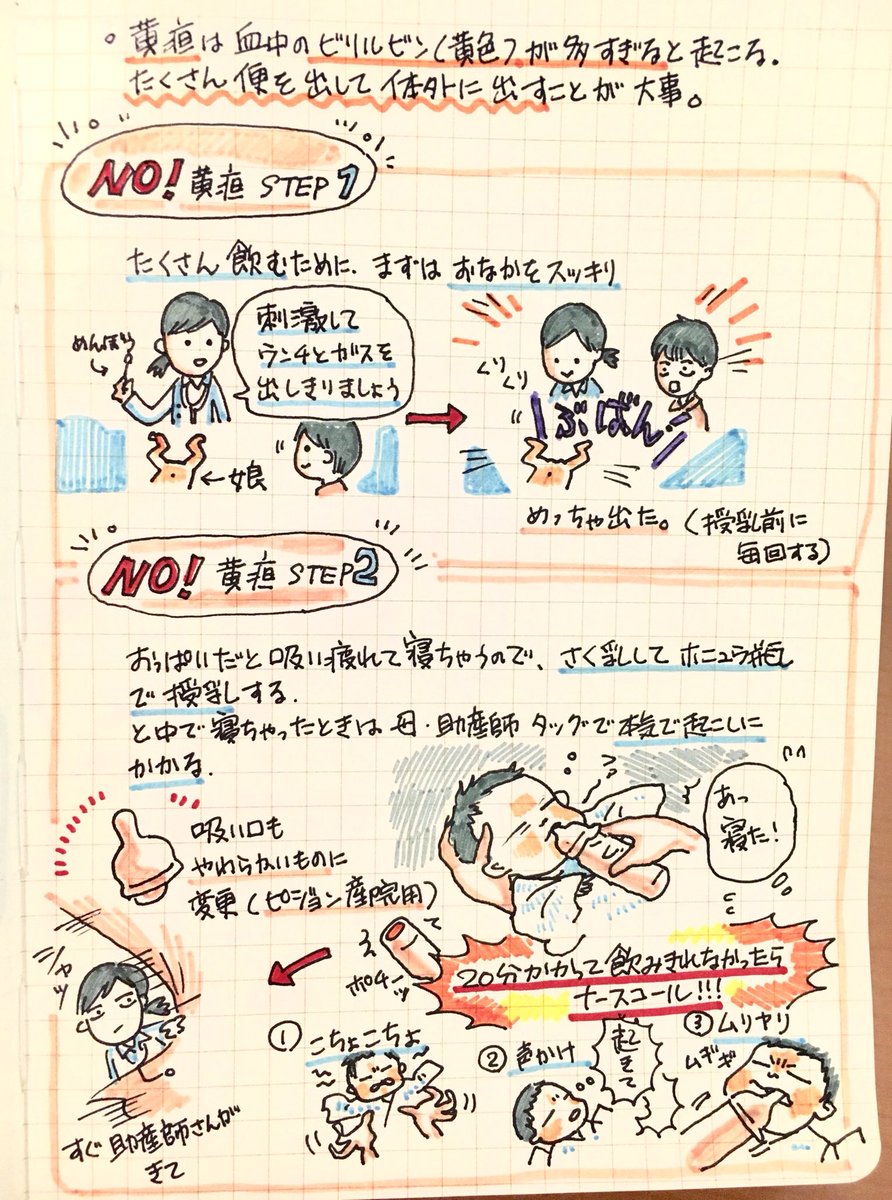 。黄疸は血中のビリルビン(黄色)が多すぎると起こる.
たくさん便を出して体外に出すことが大事。
NO!黄疸 STEP1
たくさん飲むために、まずはおなかをスッキリ
めんぼう
刺激して
ウンチとガスを
出しきりましょう
←娘
くりくり
ぶばん!
めっちゃ出た。(授乳前に
毎回する)
NO!黄疸 STEP2
おっぱいだと吸い疲れて寝ちゃうので、さく乳してホニュウ瓶
で授乳する.
と中で寝ちゃったときは母・助産師タッグで本気で起こしに
かかる.
吸い口も
やわらかいものに
変更(ピジョン産院用)
あっ
寝た!
ポチーッ
20分かかって飲みきれなかったら
ナースコール!!!
シャッ
すぐ助産師さんが
きて
①こちょこちょ
②声かけ
起きて
③ムリヤリ
ムギギ